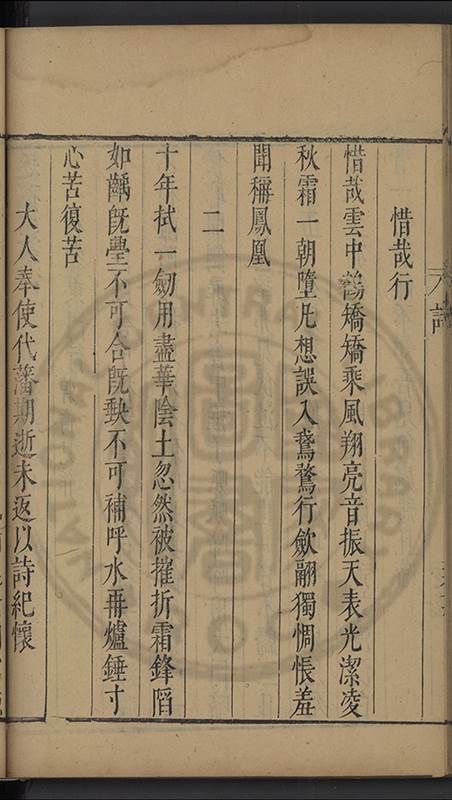 惜哉行
惜哉雲中鶴矯矯乘風翔亮音振天表光潔凌
秋霜一朝墮凡想誤入鵞鶩行歛翮獨惆悵羞
聞稱鳳凰
二
十年拭一劒用盡華陰土忽然被摧折霜鋒陷
如甎旣舋不可合旣𡙇不可補呼水再爐錘寸
心苦復苦
大人奉使代藩期逝未返以詩紀懷